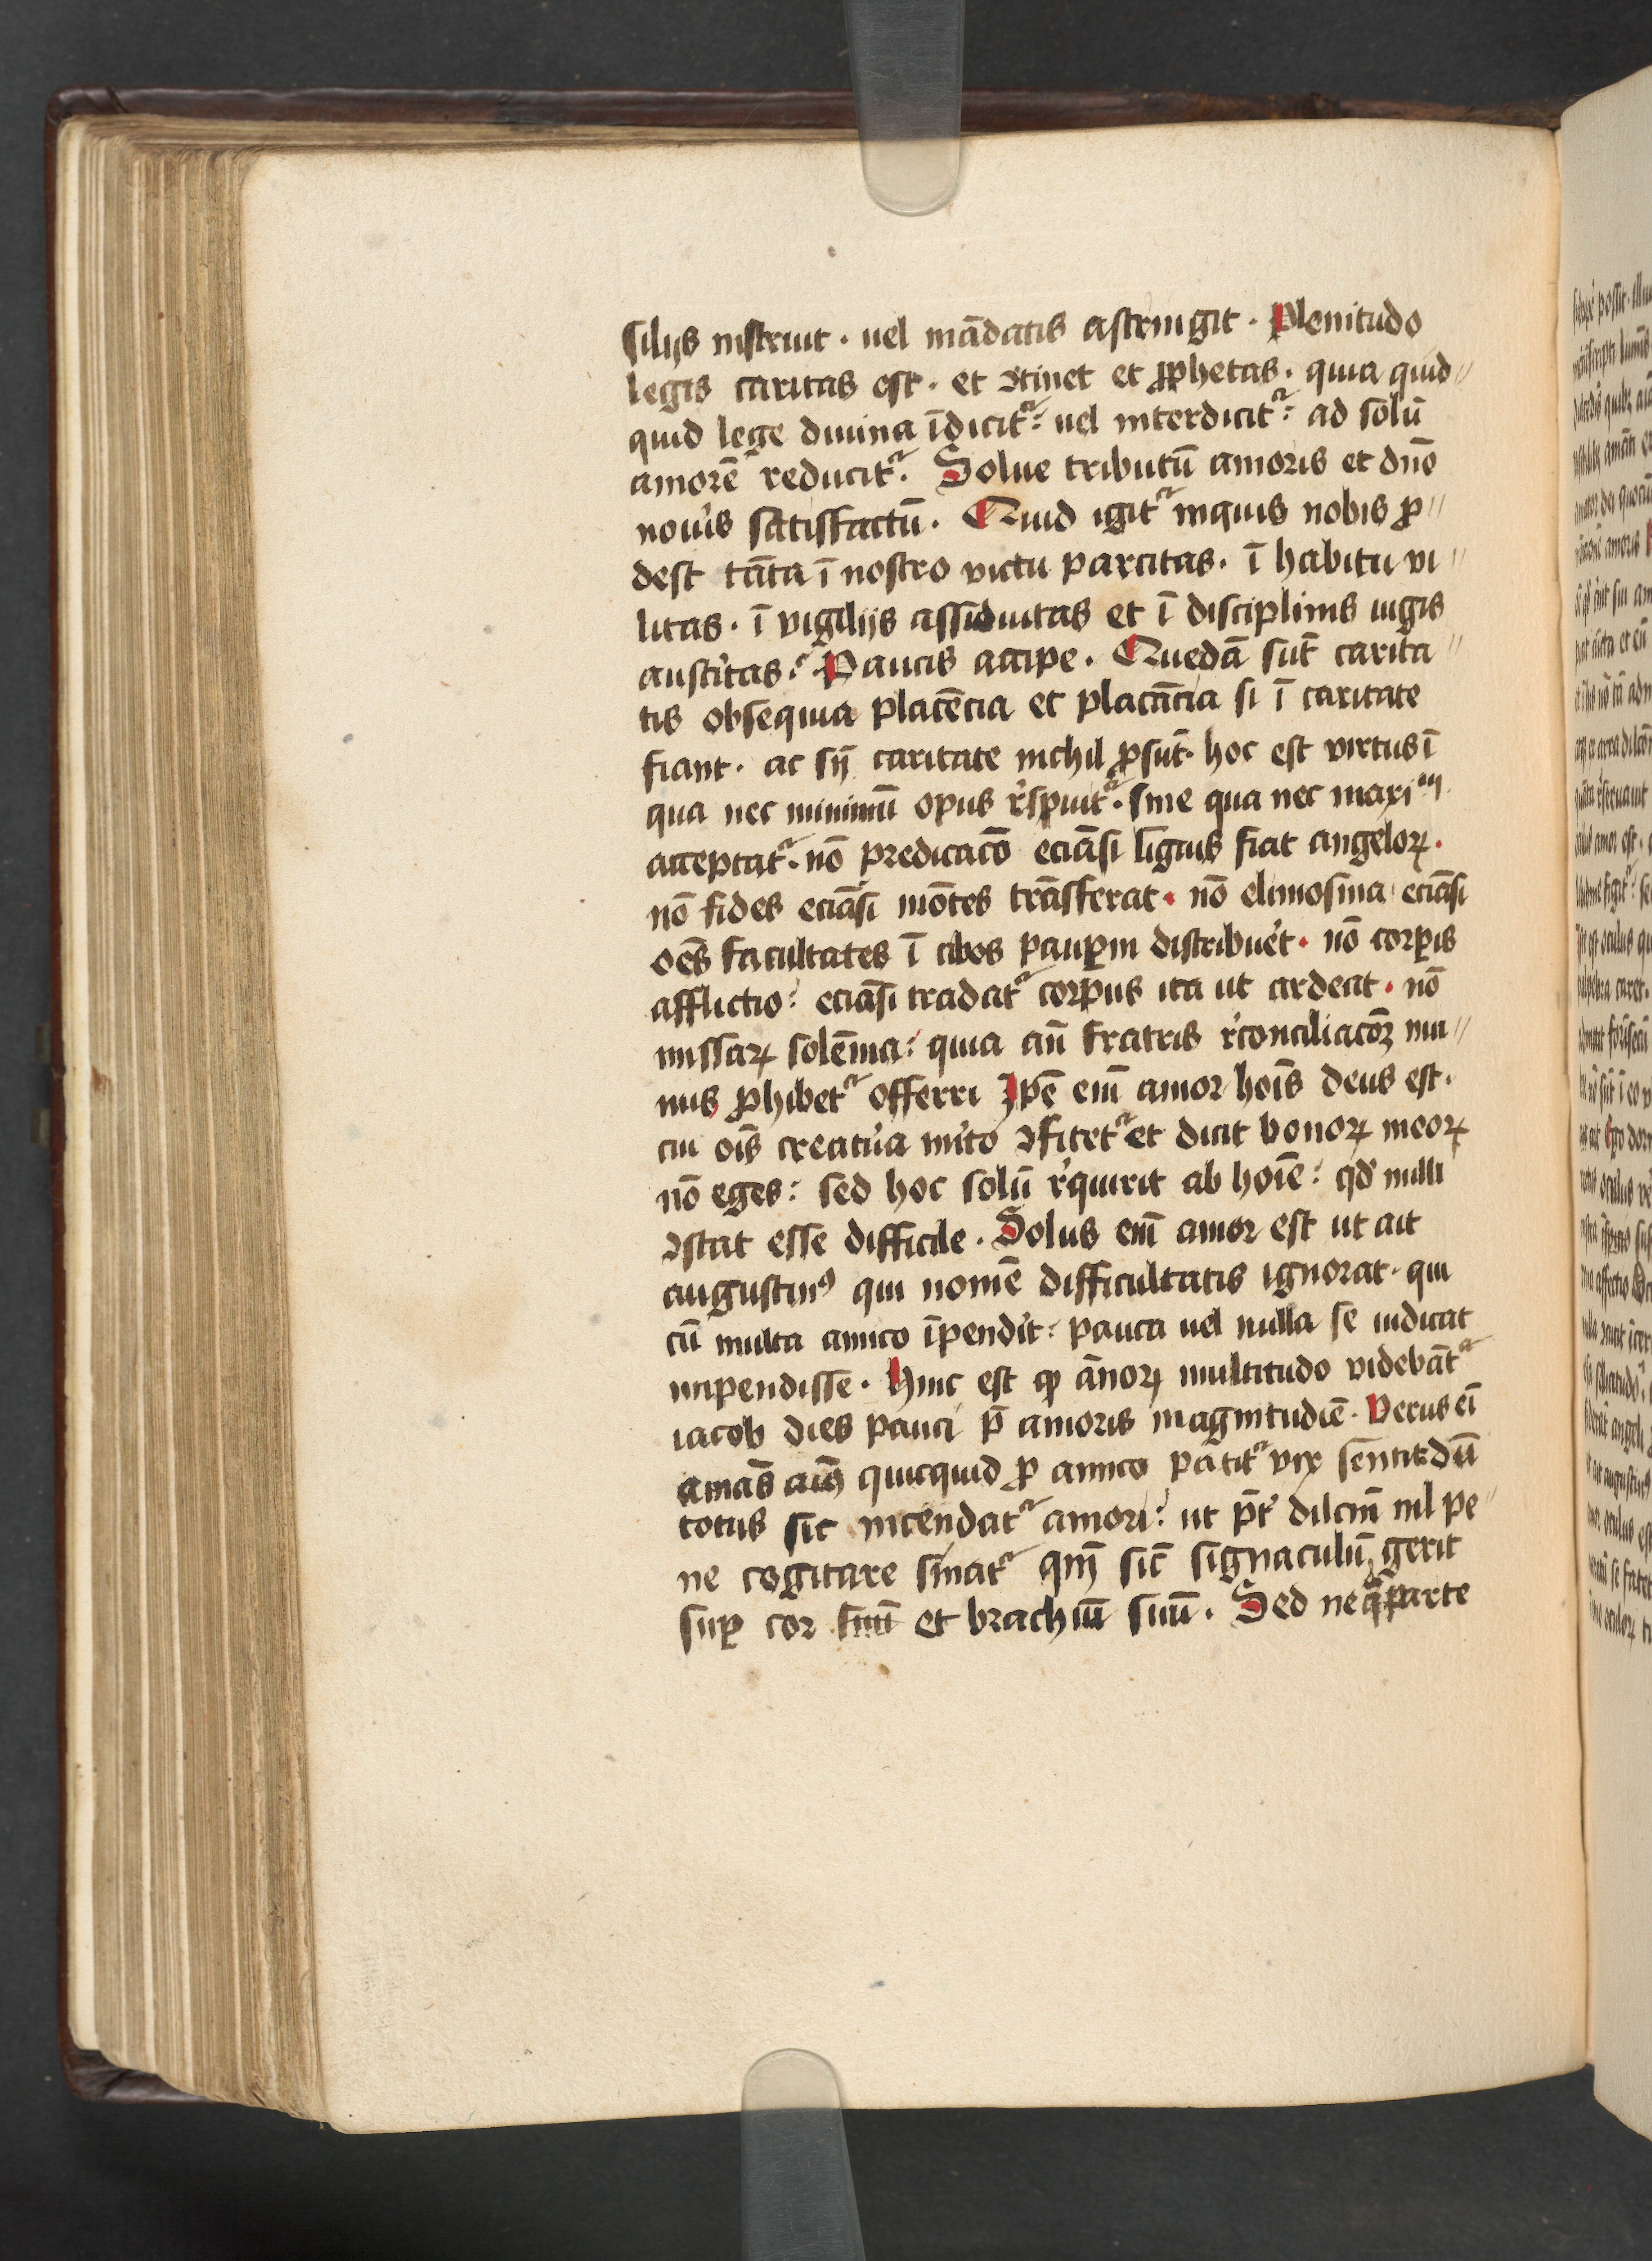 silijs instruit · uel mādatis astringit · Plenitudo
legis caritas est · et ꝯtinet et ꝓphetas · quia quid〃
quid lege diuina īdicitᷣ: uel interdicitᷣ: ad solū
amorē reducitᷣ. Solue tributū amoris et dn̄o
noũis satisfactū · Quid igitᷣ inquis nobis ꝓ〃
dest tāta ī nostro victu parcitas · ī habitu vi〃
litas · ī vigilijs assiduitas et ī disciplinis iugis
austitas: Paucis accipe · Quedā sūt carita〃
tis obsequia placēcia et placācia si ī caritate
fiant · ac sn̄ caritate nichil ꝓsūt · hoc est virtus ī
qua nec minimū opus r̓spuitᷣ · sine qua nec maxiᵐ
acceptatᷣ · nō predicacō eciāsi lignis fiat angeloꝝ ·
nō fides eciāsi mōtes trāsferat · nō elimosina eciāsi
oēs facultates ī cibos pauꝑm distribuẽt · nō corꝑis
afflictio: eciāsi tradatᷣ corpus ita ut ardeat · nō
missaꝝ solēnia: quia an̄ fratris r̓conciliacōꝫ mu〃
nus ꝓhibetᷣ offerri Ipē em̄ amor hoīs deus est ·
cui oīs creatũa m̓ito ꝯfitetᷣ et dicit bonoꝝ meoꝝ
nō eges: sed hoc solū r̓quirit ab hoīe: qd̓ nulli
ꝯstat esse difficile · Solus em̄ amor est ut ait
augustinꝰ qui nomē difficultatis ignorat · qui
cū multa amico īpendit: pauca uel nulla se iudicat
impendisse · Hinc est ꝙ ānoꝝ multitudo videbātᷣ
iacob dies pauci p̄ amoris magnitudīe · Verus eī
amās quicquid ꝓ amico patitᷣ vix sentit dū
totus sic incendatᷣ amori: ut p̄t̓ dilcm̄ nil pe〃
ne cogitare sinatᷣ qm̄ sic̄ signaculū gerit
suꝑ cor suū et brachiū suū · Sed neqꝫ parte